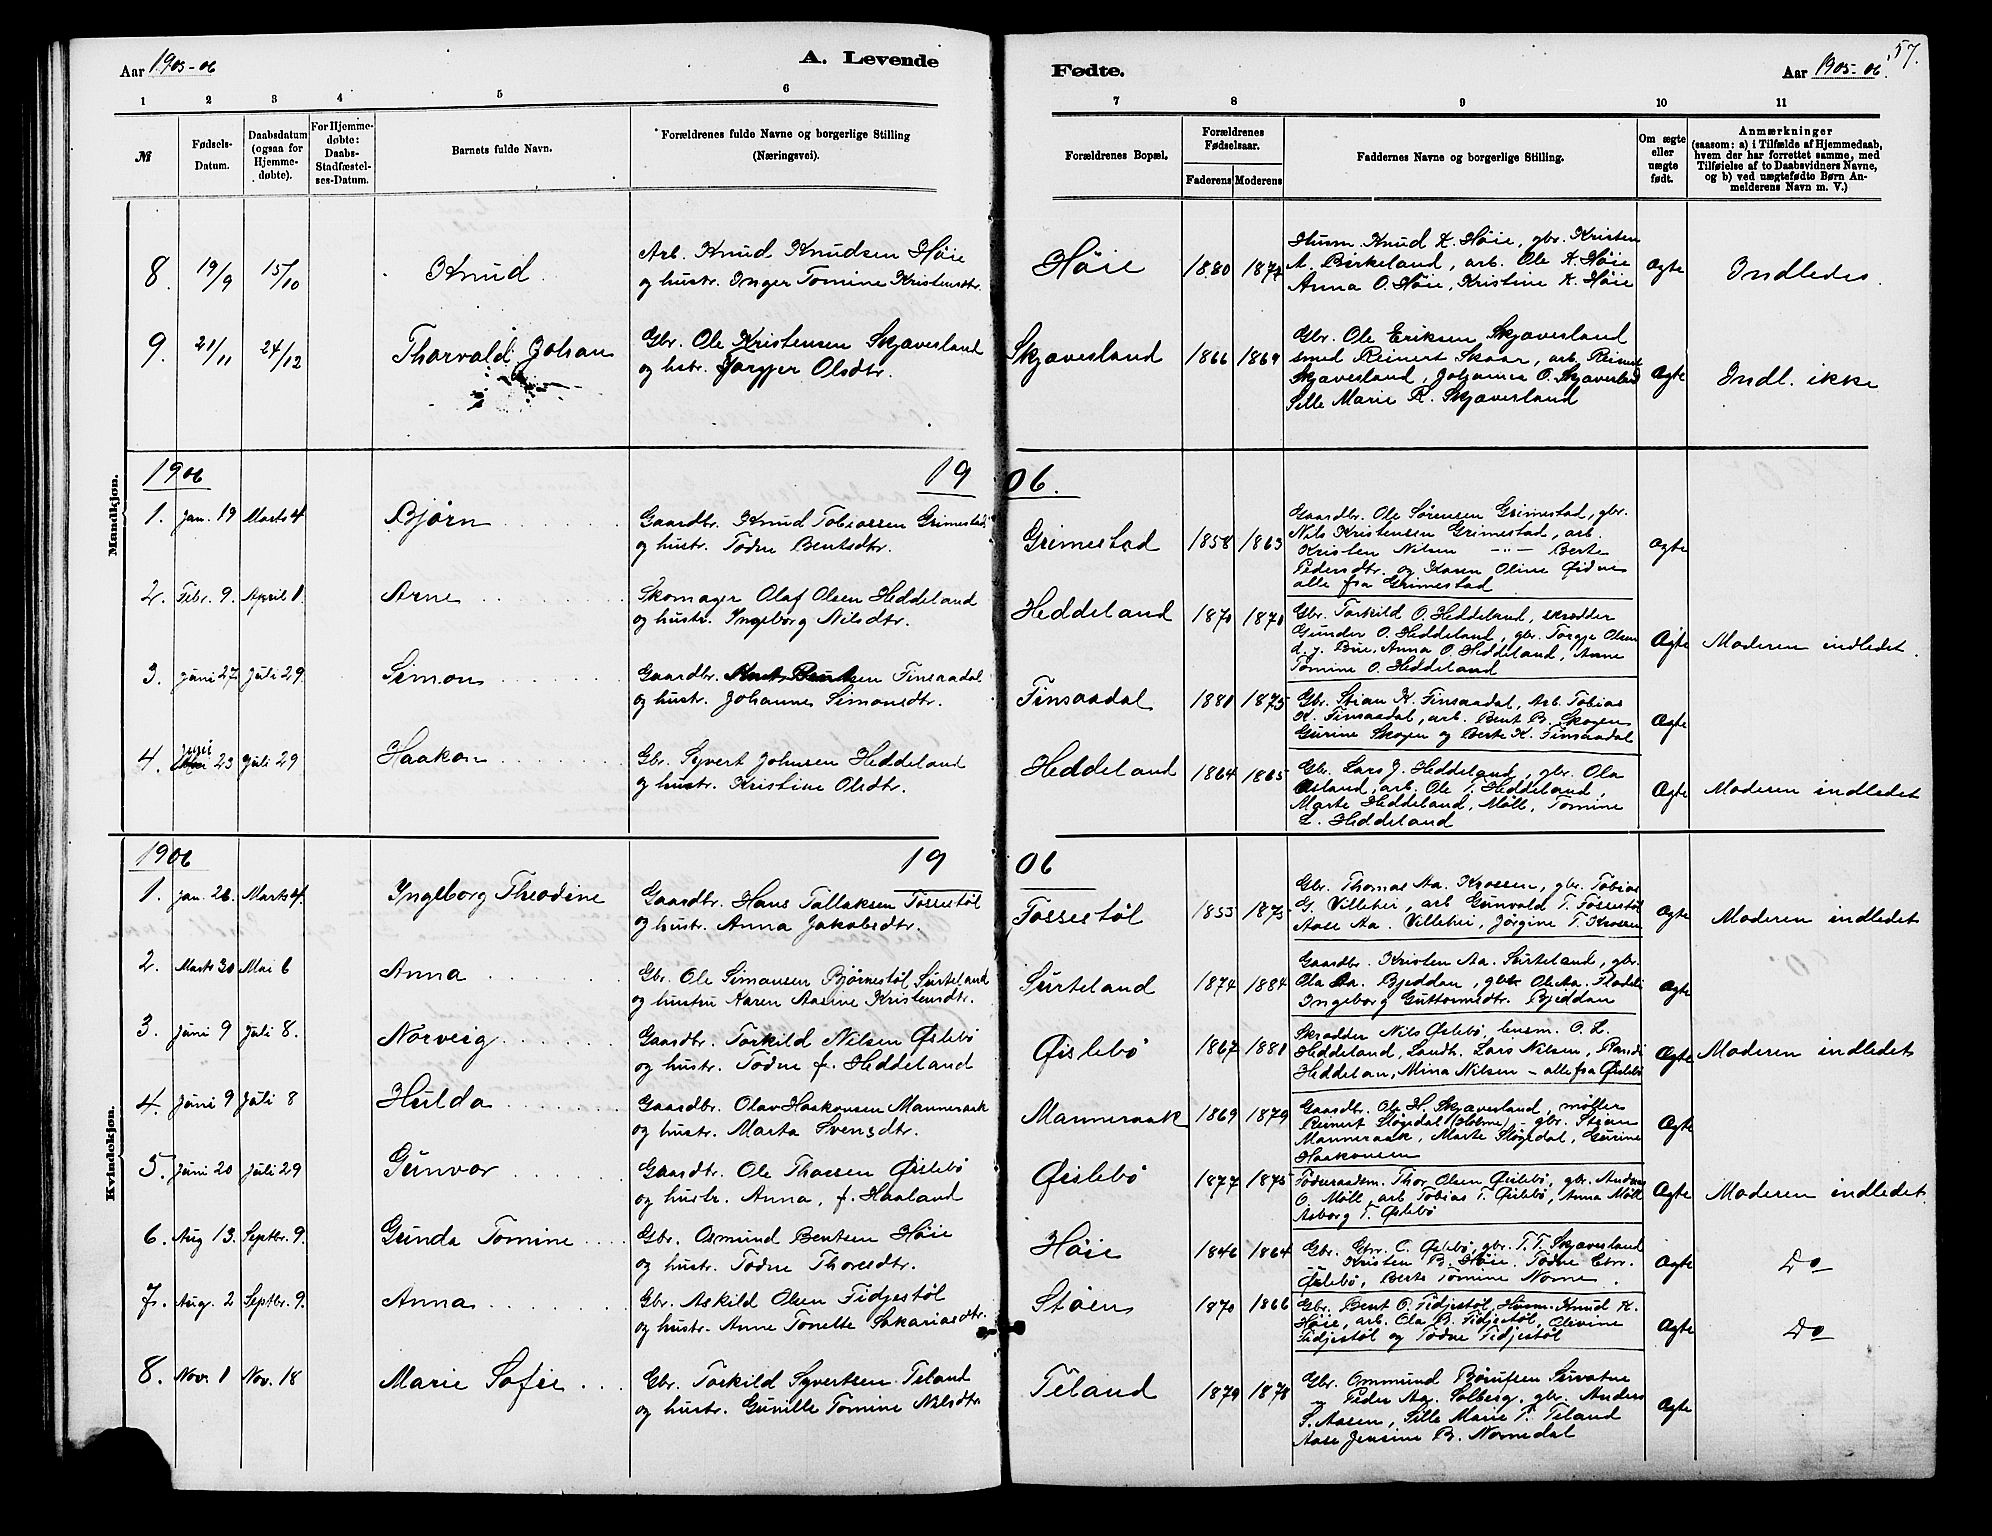 Aar 1905-06
A. Levende
Fødte.
Aar 1905-06.
57.
1 2 3 4 5 6 7 8 9 10 11
№
Fødsels-Datum.
Daabsdatum (ogsaa for Hjemmedøbte).
For Hjemmedøbte: Daabs-Stadfæstelses-Datum.
Barnets fulde Navn.
Forældrenes fulde Navne og borgerlige Stilling (Næringsvei).
Forældrenes Bopæl.
Forældrenes Fødselsaar.
Faderens Moderens
Faddernes Navne og borgerlige Stilling.
Om ægte eller uægte født.
Anmærkninger (saasom: a) i Tilfælde af Hjemmedaab, hvem der har forrettet samme, med Tilføielse af to Daabsvidners Navne, og b) ved uægtefødte Børn Anmelderens Navn m. V.)
Mandkjøn.
8. 19/9 15/10 Knud.
Arb. Knud Knudsen Høie
og hustr. Inger Tomine Kristensdtr.
Høie 1880 1874
Husm. Knud K. Høie, gbr. Kristen
A. Birkeland, arb. Ole K. Høie
Anna O. Høie, Kristine K. Høie
Ægte Indledes.
9. 21/11 24/12 Thorvald Johan
Gbr. Ole Kristensen Skjævesland
og hstr. Jørgjer Olsdtr.
Skjævesland 1866 1864
Gbr. Ole Eriksen Skjævesland
smed Reinert Skaar, arb. Reinert
Skjævesland, Johanna O. Skjævesland
Sille Marie R. Skjævesland
Ægte Indl. ikke
1906 1906.
1. Jan. 19 Marts 4 Bjørn
Gaardbr. Knud Tobiassen Grimestad
og hustr. Todne Bentsdtr.
Grimestad 1858 1863
Gaardbr. Ole Sørensen Grimestad, gbr.
Nils Kristensen Grimestad, arb.
Kristen Nilsen - " - Berte
Pedersdtr. og Karen Oline Øidne
alle fra Grimestad
Ægte
2. Febr. 9. April 1. Arne
Skomager Olaf Olsen Heddeland
og hustr. Ingeborg Nilsdtr.
Heddeland 1870 1870
Gbr. Torkild O. Heddeland, skrædder
Gunder O. Heddeland, gbr. Torgje Olsen
d. y. Bue, Anna O. Heddeland, Anne
Tomine O. Heddeland
Ægte Moderen indledet.
3. Juni 27. Juli 29 Simon
Gaardbr. Knut Bentsen Finsaadal
og hustr. Johanne Simonsdtr.
Finsaadal 1881 1875
Gbr. Stian K. Finsaadal, Arb. Tobias
K. Finsaadal, arb. Bent B. Skogen
Gurine Skogen og Berte K. Finsaadal
Ægte
4. Juni 23 Juli 29 Haakon
Gbr. Syvert Johnsen Heddeland
og hustr. Kristine Olsdtr.
Heddeland 1864 1865
Gbr. Lars J. Heddeland, gbr. Ola
Øsland, arb. Ole T. Heddeland,
Marte Heddeland, Møll, Tomine
L. Heddeland
Ægte Moderen indledet
Kvindekjøn.
1906 1906
1. Jan. 26. Marts 4. Ingeborg Theodine
Gaardbr. Hans Tallaksen Tossestøl
og hustr. Anna Jakobsdtr.
Tossestøl 1855 1875
Gbr. Thomas Aa. Krossen, gbr. Tobias
G. Villehei, arb Gunvald T. Tossestøl
Aase Aa. Villehei, Jørgine T. Krossen
Ægte Moderen indledet
2. Marts 30 Mai 6 Anna
Gbr. Ole Simonsen Bjørnestøl Surteland
og hustru Karen Aasine Kristensdtr.
Surteland 1874 1884
Gaardbr. Kristen Aa. Surteland, gbr.
Ola Aa. Bjeddan, gbr. Ole Aa.
Ingeborg Guttormsdtr. Bjeddan
Ægte
3. Juni 9 Juli 8. Norveig
Gaardbr. Torkild Nilsen Øislebø
og hustr. Todne f. Heddeland
Øislebø 1867 1881
Skrædder Nils Øislebø, lensm. O. L.
Heddeland, Landh. Lars Nilsen, Randi
Heddelan, Mina Nilsen - alle fra Øislebø
Ægte Moderen indledet
4. Juni 9 Juli 8 Hulda
Gaardbr. Olav Haakonsen Manneraak
og hustr. Marta Svensdtr.
Manneraak 1869 1879
Gaardbr. Ole H. Skjævesland, møller
Reinert Støgedal (Holme), gbr. Stian
Manneraak, Marte Støgedal, Gurine
Haakonsen
Ægte
5. Juni 20 Juli 29 Gunvor
Gaardbr. Ole Thorsen Øislebø
og hustr. Anna, f. Haaland
Øislebø 1877 1875
Føderaadsm. Thor Olsen Øislebø, gbr. Anders
O. Møll, arb Tobias T. Øislebø, Anna Møll
Asborg T. Øislebø
Ægte Moderen indledet.
6. Aug 13. Septbr. 9. Gunda Tomine
Gbr. Osmund Bentsen Høie
og hustr. Todne Thorsdtr.
Høie 1846 1864
Gbr. Gbr. C. Øislebø, gbr. T. T. Skjævesland
Kristen B. Høie, Todne
Øislebø, Berte Tomine Nome.
Ægte Do
7. Aug. 2 Septbr. 9. Anna
Gbr. Askild Olsen Fidjestøl
og hustr. Anne Tonette Sakariasdtr.
Støen 1870 1866
Gbr. Bent O. Fidjestøl, Husm. Knud K.
Høie, arb. Ola B. Fidjestøl, Olivine
Fidjestøl og Todne Fidjestøl
Ægte Do
8. Nov. 1 Nov. 18 Marie Sofie
Gbr. Torkild Syvertsen Teland
og hustr. Gunille Tomine Nilsdtr.
Teland 1879 1878
Gbr. Ommund Børufsen Survatne
Peder Aag. Solberg, gbr. Anders
S. Aasen, Sille Marie T. Teland
Aase Jensine B. Nomedal
Ægte